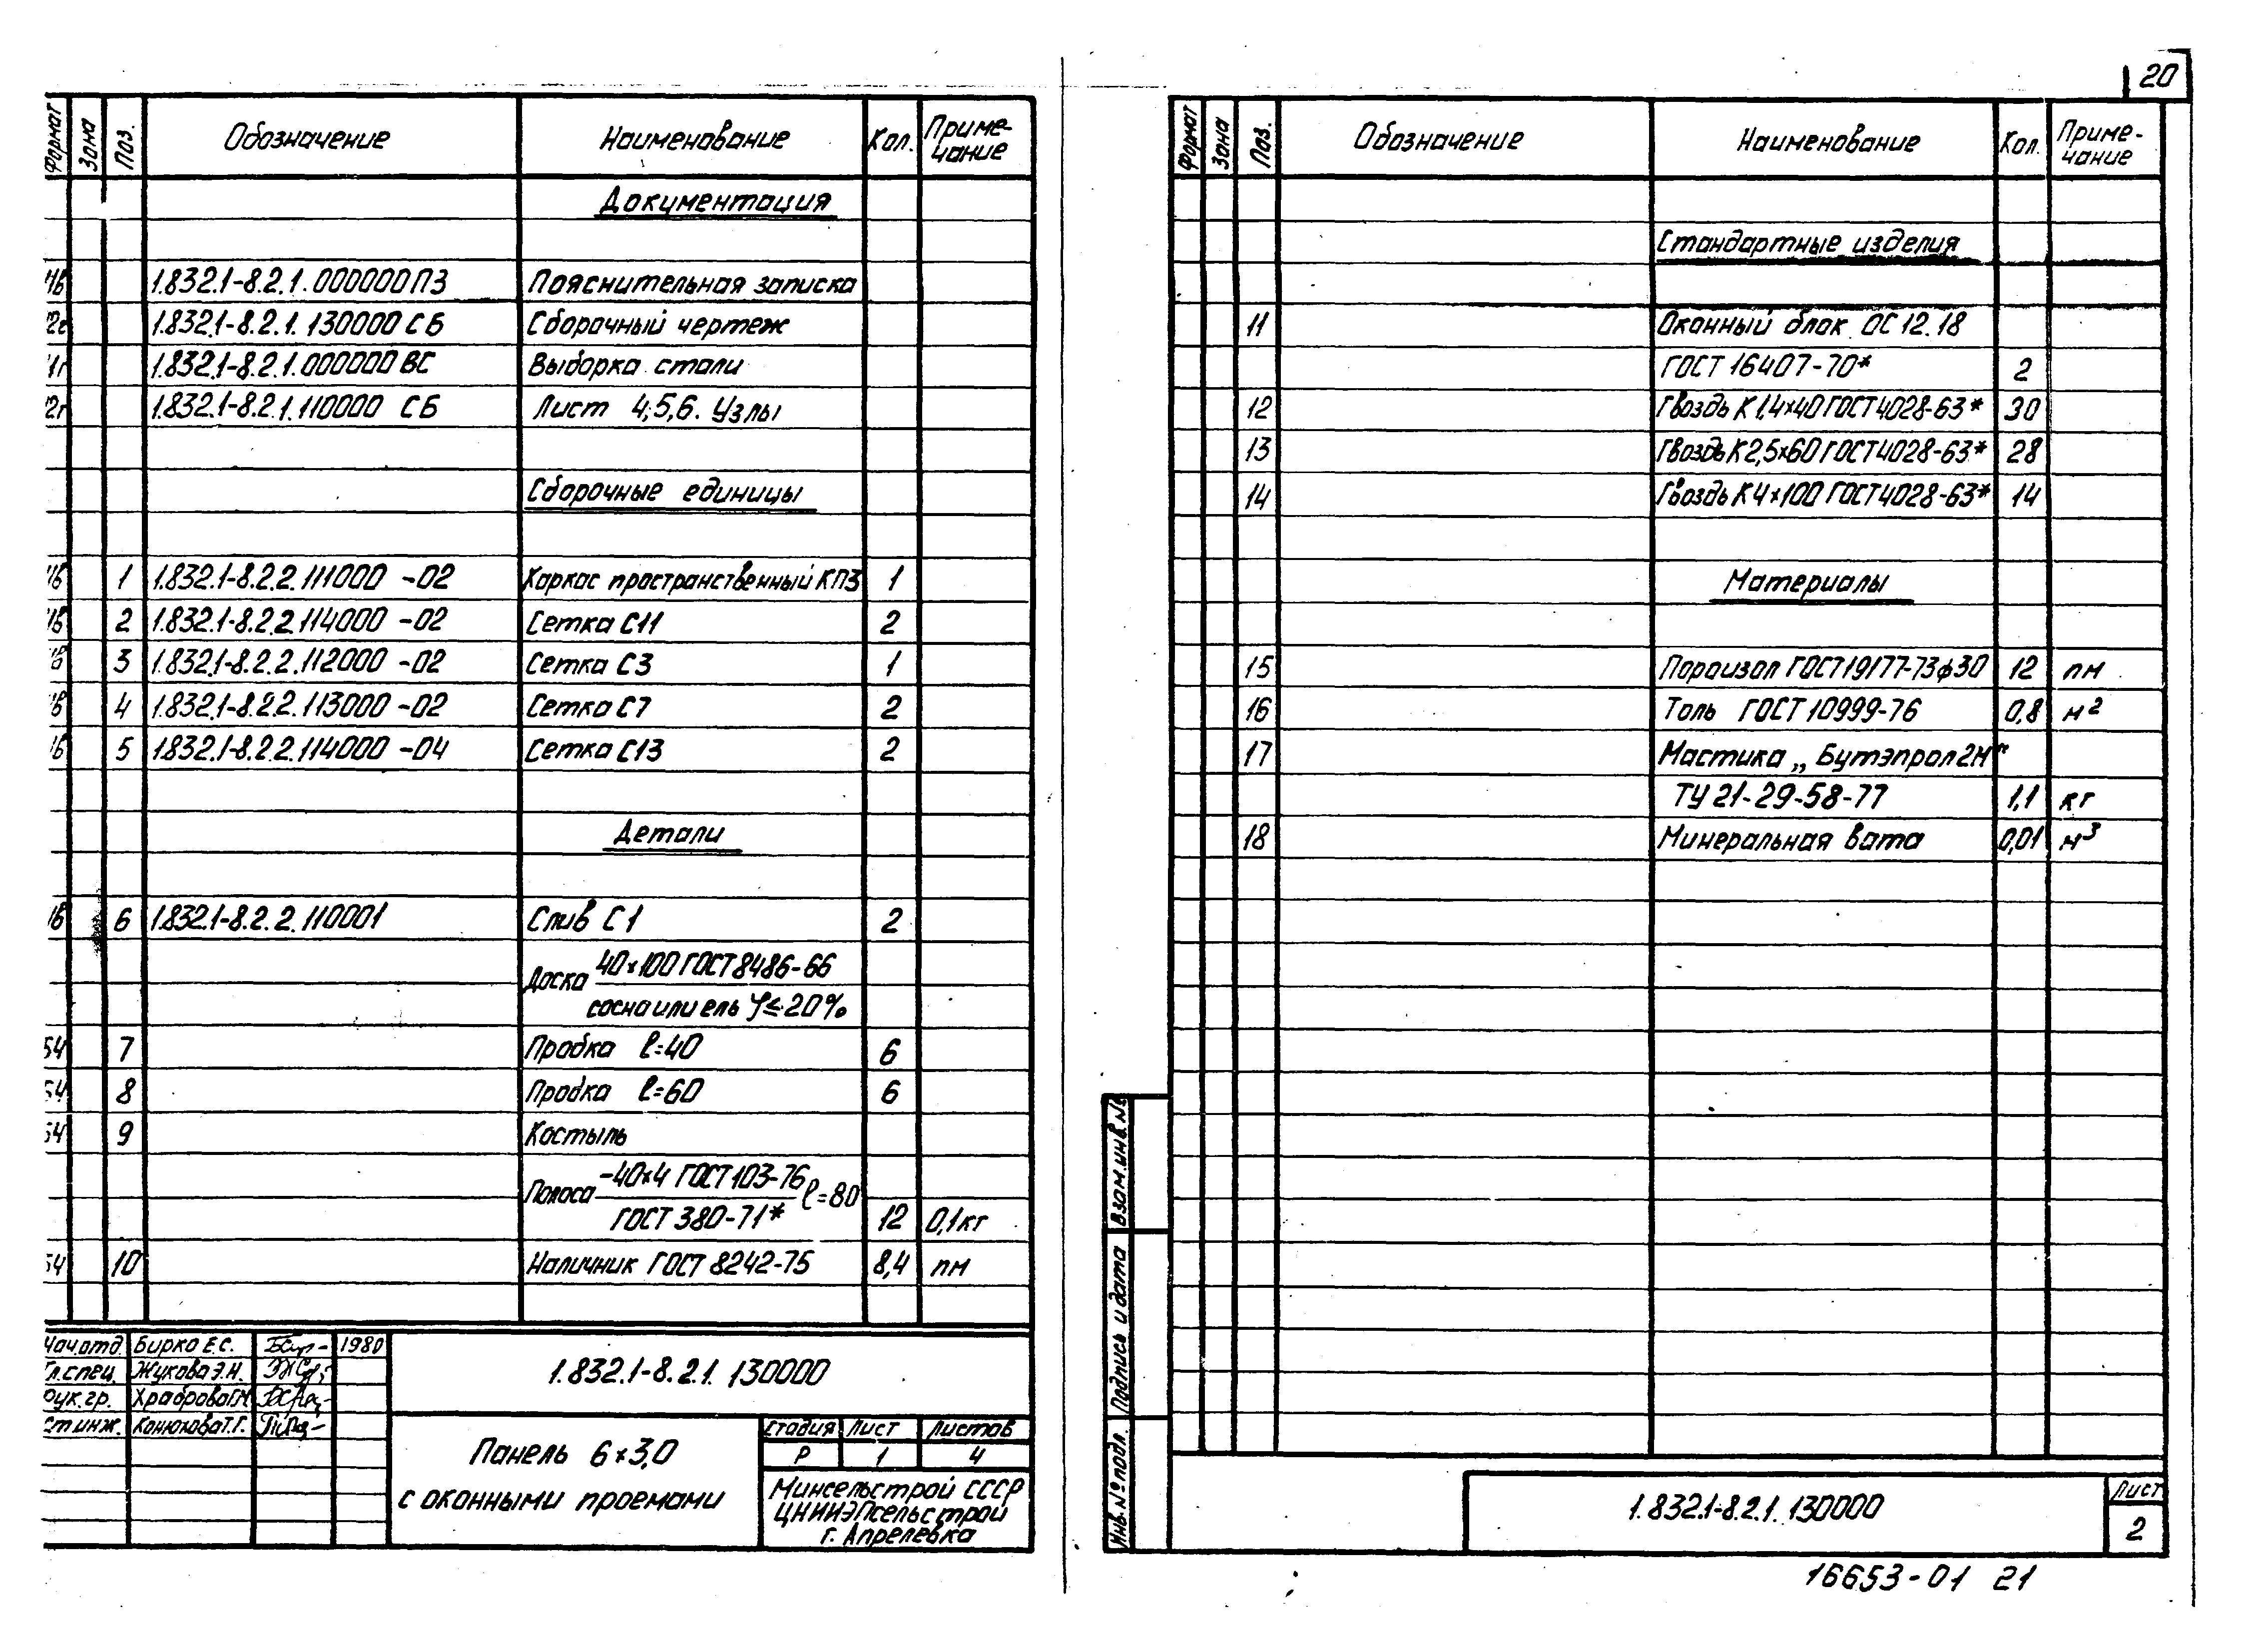 Формат Зона Поз. Обозначение Наименование Кол. Приме-
чание
Документация
1.832.1-8.2.1.000000ПЗ Пояснительная записка
1.832.1-8.2.1.130000 СБ Сборочный чертеж
1.832.1-8.2.1.000000 ВС Выборка стали
1.832.1-8.2.1.110000 СБ Лист 4,5,6. Узлы
Сборочные единицы
1 1.832.1-8.2.2.111000 -02 Каркас пространственный КП3 1
2 1.832.1-8.2.2.114000 -02 Сетка С11 2
3 1.832.1-8.2.2.112000 -02 Сетка С3 1
4 1.832.1-8.2.2.113000 -02 Сетка С7 2
5 1.832.1-8.2.2.114000 -04 Сетка С13 2
Детали
6 1.832.1-8.2.2.110001 Слив С1 2
Доска 40×100 ГОСТ 8486-66
сосна или ель φ≤20%
7 Пробка ℓ=40 6
8 Пробка ℓ=60 6
9 Костыль
Полоса -40×4 ГОСТ 103-76 ℓ=80
ГОСТ 380-71* 12 0,1кг
10 Наличник ГОСТ 8242-75 8,4 пм
Нач.отд. Бирко Е.С. 1980
Гл.спец. Жукова Э.Н.
Рук.гр. Храброва Г.М.
Ст.инж. Конюхова Т.Г.
1.832.1-8.2.1.130000
Панель 6×3,0
с оконными проемами
Стадия Лист Листов
Р 1 4
Минсельстрой СССР
ЦНИИЭПсельстрой
г. Апрелевка
20
Формат Зона Поз. Обозначение Наименование Кол. Приме-
чание
Стандартные изделия
11 Оконный блок ОС 12.18
ГОСТ 16407-70* 2
12 Гвоздь К 1,4×40 ГОСТ 4028-63* 30
13 Гвоздь К 2,5×60 ГОСТ 4028-63* 28
14 Гвоздь К 4×100 ГОСТ 4028-63* 14
Материалы
15 Пороизол ГОСТ 19177-73 ф30 12 пм
16 Толь ГОСТ 10999-76 0,8 м²
17 Мастика „Бутэпрол 2М"
ТУ 21-29-58-77 1,1 кг
18 Минеральная вата 0,01 м³
Взам.инв.№
Подпись и дата
Инв.№подл.
1.832.1-8.2.1.130000
Лист
2
16653-01 21